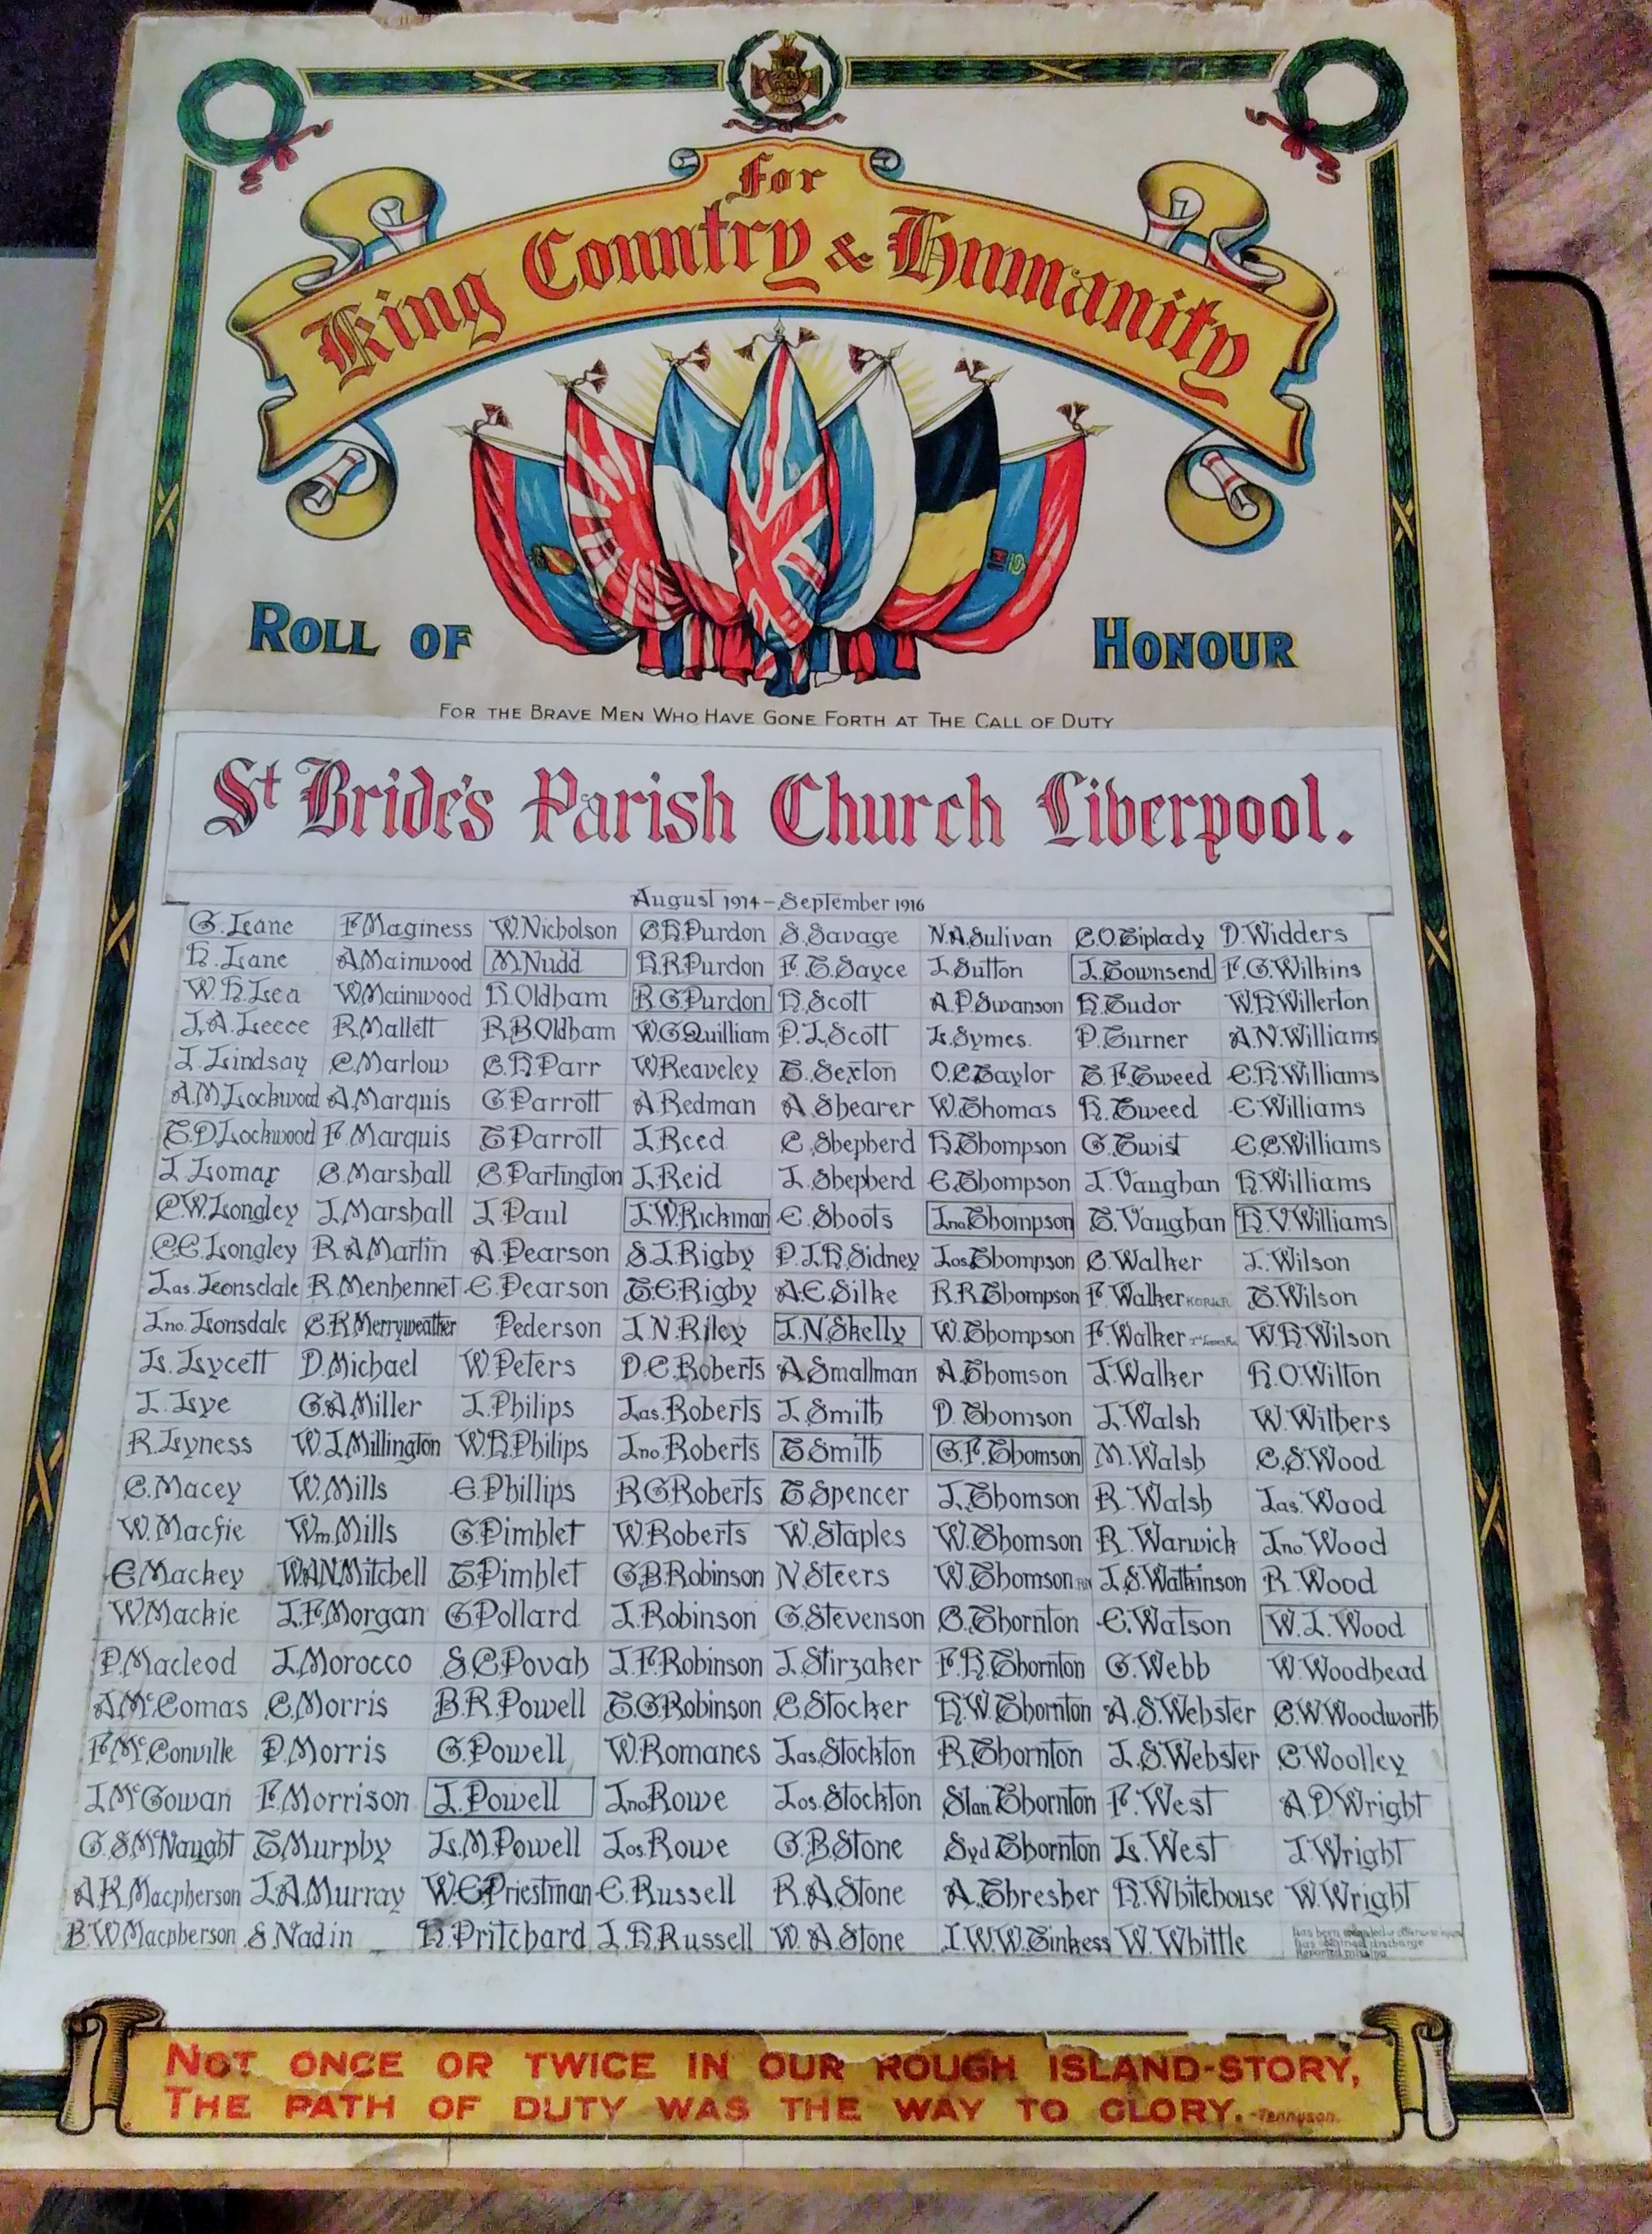 For
King Country & Humanity
ROLL OF HONOUR
FOR THE BRAVE MEN WHO HAVE GONE FORTH AT THE CALL OF DUTY
St Bride's Parish Church Liverpool.
August 1914 – September 1916
G. Lane F. Maginess W. Nicholson C.H. Purdon S. Savage N.A. Sulivan C.O. Tiplady D. Widders
H. Lane A. Mainwood M. Nudd H.R. Purdon F.T. Sayce J. Sutton J. Townsend F.G. Wilkins
W.H. Lea W. Mainwood H. Oldham R.G. Purdon H. Scott A.P. Swanson H. Tudor W.H. Willerton
J.A. Leece R. Mallett R.B. Oldham W.G. Quilliam P.J. Scott L. Symes. P. Turner A.N. Williams
J. Lindsay C. Marlow C.H. Parr W. Reaveley T. Sexton O.C. Taylor T.F. Tweed E.H. Williams
A.M. Lockwood A. Marquis G. Parrott A. Redman A. Shearer W. Thomas H. Tweed E. Williams
T.D. Lockwood F. Marquis T. Parrott J. Reed C. Shepherd H. Thompson G. Twist E.C. Williams
J. Lomax C. Marshall C. Partington J. Reid J. Shepherd E. Thompson J. Vaughan H. Williams
C.W. Longley J. Marshall J. Paul J.W. Rickman E. Shoots Jno. Thompson T. Vaughan H.V. Williams
C.E. Longley R.A. Martin A. Pearson S.J. Rigby P.J.H. Sidney Jos. Thompson C. Walker J. Wilson
Jas. Lonsdale R. Menhennet E. Pearson T.E. Rigby A.E. Silke R.R. Thompson F. Walker T. Wilson
Jno. Lonsdale C.K. Merryweather Pederson J.N. Riley J.N. Skelly W. Thompson F. Walker W.H. Wilson
L. Lycett D. Michael W. Peters D.C. Roberts A. Smallman A. Thomson J. Walker H.O. Wilton
J. Lye G.A. Miller J. Philips Jas. Roberts J. Smith D. Thomson J. Walsh W. Withers
R. Lyness W.J. Millington W.H. Philips Jno. Roberts T. Smith G.F. Thomson M. Walsh C.S. Wood
C. Macey W. Mills E. Phillips R.G. Roberts T. Spencer J. Thomson R. Walsh Jas. Wood
W. Macfie Wm. Mills G. Pimblet W. Roberts W. Staples W. Thomson R. Warwick Jno. Wood
E. Mackey W.A.N. Mitchell T. Pimblet G.B. Robinson N. Steers W. Thomson J.S. Watkinson R. Wood
W. Mackie J.F. Morgan G. Pollard J. Robinson G. Stevenson C. Thornton E. Watson W.J. Wood
P. Macleod J. Morocco S.C. Povah J.F. Robinson J. Stirzaker F.H. Thornton G. Webb W. Woodhead
A. McComas C. Morris B.R. Powell T.G. Robinson C. Stocker H.W. Thornton A.S. Webster C.W. Woodworth
F. McConville P. Morris G. Powell W. Romanes Jas. Stockton R. Thornton J.S. Webster C. Woolley
J. McGowan F. Morrison J. Powell Jno. Rowe Jos. Stockton Stan Thornton F. West A.D. Wright
G.S. McNaught T. Murphy L.M. Powell Jos. Rowe G.B. Stone Syd Thornton L. West J. Wright
A.K. Macpherson J.A. Murray W.E. Priestman E. Russell R.A. Stone A. Thresher H. Whitehouse W. Wright
B.W. Macpherson S. Nadin H. Pritchard J.H. Russell W.A. Stone I.W.W. Tinkess W. Whittle
Has been
has obtained discharge
Reported missing
NOT ONCE OR TWICE IN OUR ROUGH ISLAND-STORY,
THE PATH OF DUTY WAS THE WAY TO GLORY. -Tennyson.